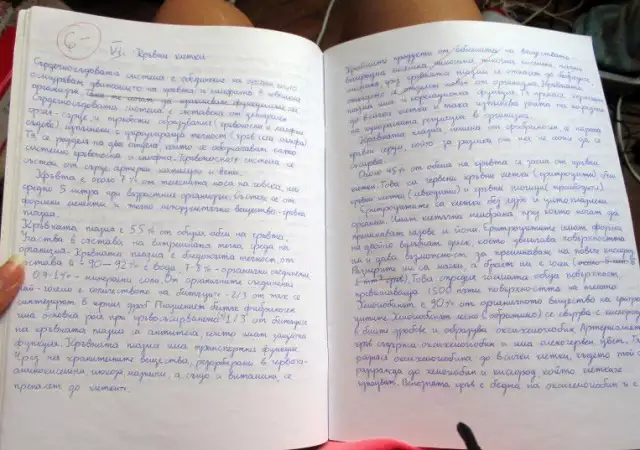 6-
VI. Кръвни клетки
Сърдечносъдовата система е съединение на органи, които
осигуряват движението на кръвта и лимфата в човешкия
организъм.
Сърдечносъдовата система е съставена от
орган - сърце и тръбести образувания (кръвоносни и лимфни
съдове), изпълнени с циркулираща течност (кръв или лимфа)
Тя се разделя на два отдела, които се обозначават като
система кръвоносна и лимфна. Кръвоносната система се
състои от сърце, артерии, капиляри и вени.
Кръвта е около 7% от телесната маса на човека, или
средно 5 литра при възрастния организъм. Състои се от
формени елементи и течно междуклетъчно вещество - кръвна
плазма.
Кръвната плазма е 55% от общия обем на кръвта.
Участва в състава на вътрешната течна среда на
организма. Кръвната плазма е безцветна течност, от
състава й 90 - 92% е вода, 7-9% - органични съединения,
0.9-1% - минерални соли. От органичните съединения
най-голямо е количеството на белтъците - 2/3 от тях се
синтезират в черния дроб. Плазменият белтък фибриноген
има основна роля при кръвосъсирването. 1/3 от белтъците
на кръвната плазма са антитела, които имат защитна
функция. Кръвната плазма има транспортна функция.
Чрез нея хранителните вещества, резорбирани в червата -
аминокиселини, глюкоза, мазнини, а също и витамини, се
пренасят до клетките.
Крайните продукти от обмяната на веществата -
въглероден диоксид, пикочна киселина,
през кръвната плазма се отнасят до бъбреците,
и се отделят извън организма. Кръвната
плазма има и хормонална функция. Тя пренася хормони
до всички клетки и така изпълнява ролята на
на хуморалната регулация в организма.
Кръвната плазма лишена от фибриноген, се нарича
кръвен серум, който за разлика от нея не може да се
съсирва.
Около 45% от обема на кръвта се заема от кръвни
клетки. Това са червени кръвни клетки (еритроцити), бели
кръвни клетки (левкоцити) и кръвни плочици (тромбоцити).
Еритроцитите са клетки без ядро и цитоплазмени
органели. Имат клетъчна мембрана през която могат да
преминават газове и йони. Еритроцитите имат форма
на двойно вдлъбнат диск, което увеличава повърхността
им и дава възможност за преминаване на повече кислород.
Размерите им са малки, а броят им е голям
Това определя голямата обща повърхност,
превишаваща 1500 пъти повърхността на тялото.
Хемоглобинът е 90% от органичното вещество на еритро-
цитите. Хемоглобинът лесно (обратимо) се свързва с кислород
в белите дробове и образува оксихемоглобин. Артериалната
кръв съдържа оксихемоглобин и има алено червен цвят. Тя
разнася оксихемоглобина до всички клетки, където той се
разгражда до хемоглобин и кислород, който клетките
използват. Венозната кръв е бедна на оксихемоглобин и е